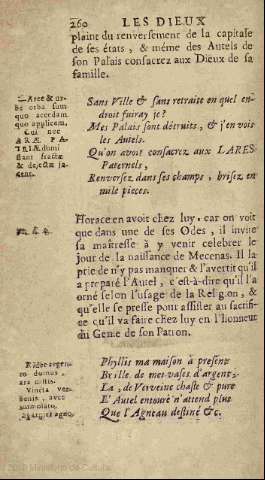 260 LES DIEUX
plaint du renversement de la capitale
de ses états, & même des Autels de
son Palais consacrez aux Dieux de sa
famille.
Arce & ur-
be orba sum
quo accedam
quo applicem,
Cui nec
ARÆ PA-
TRIÆ domi
stant fractæ
& dejectæ ja-
cent.
Sans Ville & sans retraite en quel en-
droit fuiray je?
Mes Palais sont détruits, & j'en vois
les Autels
Qu'on avoit consacrez aux LARES
Paternels,
Renversez dans ses champs, brisez en
mile pieces.
Horace en avoit chez luy, car on voit
que dans une de ses Odes, il invite
sa maîtresse à y venir celebrer le
jour de la naissance de Mecenas. Il la
prie de n'y pas manquer & l'avertit qu'il
a preparé l'Autel, c'est-à-dire qu'il l'a
orné selon l'usage de la Religion, &
qu'elle se presse pour assister au sacrifi-
ce qu'il va faire chez luy en l'honneur
du Genie de son Patron.
Ridet argen-
to domus,
ara castis
Vincta ver-
benis, avet
immolato,
spargier agno,
Phyllis ma maison à present
Brille de mes vases d'argent,
La, de Verveine chaste & pure
L'Autel entouré n'attend plus
Que l'Agneau destiné &c.